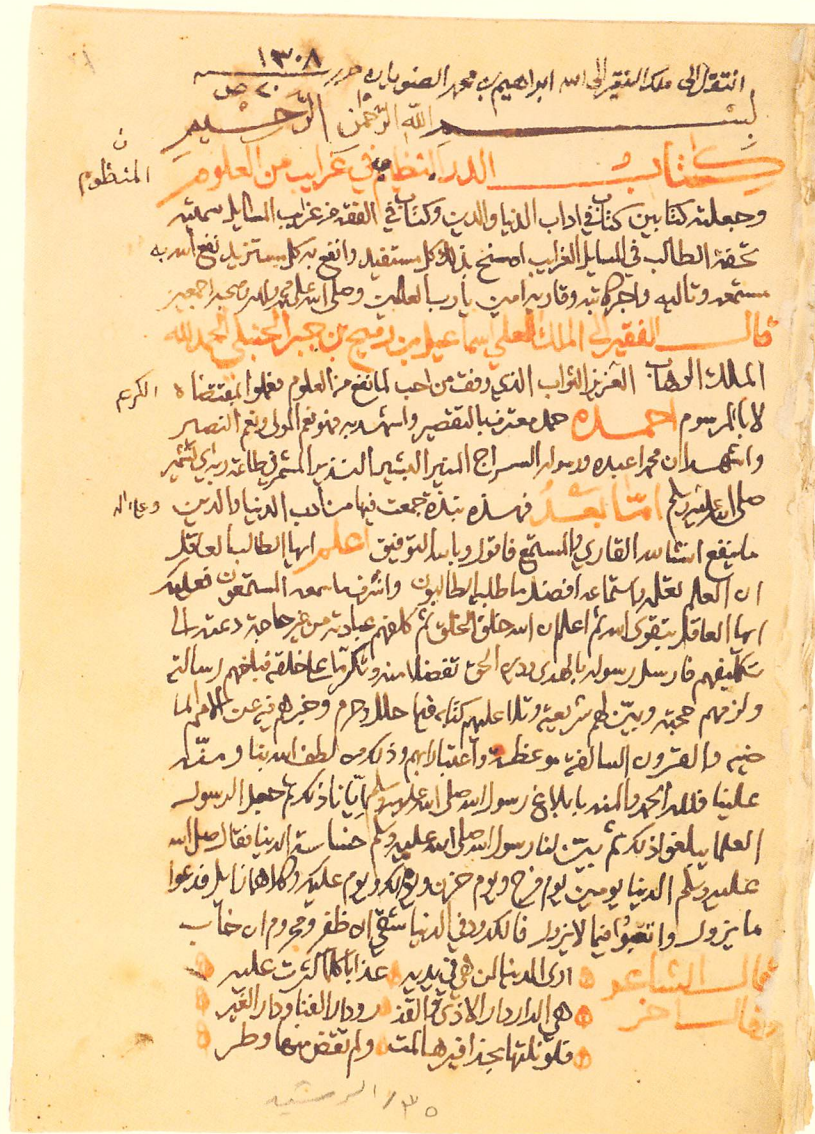 ١٣٠٨
انتقل الى ملك الفقير الى الله ابراهيم بن محمد الصنوبا حرر سنه
٢٠ ص
بسم الله الرحمن الرحيم
كتاب الدر النظيم في غرايب من العلوم
المنظوم
وجعلته كتابين كتاب في اداب الدنيا والدين وكتاب في الفقه من غرايب المسايل سميته
تحفة الطالب في المسايل الغرايب بذلك كل مستفيد وانفع به كل مستزيد نفع الله به
مستمعه وتاليه واجر كاتبه وقاريه امين يا رب العالمين وصلى الله على محمد واله وصحبه اجمعين
قال الفقير الى الملك العلي اسماعيل بن رميح بن جبر الحنبلي الحمد لله
الملك الوهاب العزيز التواب الذي وفق من احب لما نفع من العلوم فعملوا بمقتضاه
الكريم
لا بالمرسوم احمده حمد معترف بالتقصير واستهديه فهو نعم المولى ونعم النصير
واشهد ان محمدا عبده ورسوله السراج المنير البشير النذير المشمر في طاعة ربه اي تشمير
صلى الله عليه وسلم اما بعد فهذه نبذة جمعت فيها من ادب الدنيا والدين
وعلى اله
ما ينفع انشا الله القاري والمستمع فاقول وبالله التوفيق اعلم ايها الطالب العاقل
ان العلم افضل ما طلبه الطالبون واشرف ما سمعه المستمعون فعليك
ايها العاقل بتقوى الله ثم اعلم ان الله خلق الخلق ثم كلفهم عبادته من غير حاجة دعته الى
تكليفهم فارسل رسوله بالهدى ودين الحق تفضلا منه وتكرما على خلقه فبلغهم رسالته
ولزمهم حجته وبين لهم شريعته وتلا عليهم كتابه فيما حلل وحرم وخبرهم فيه عن الامم الما
ضيه والقرون السالفة موعظة واعتبارا بهم وذلك من لطف الله بنا ومنه
علينا فلله الحمد والمنه بابلاغ رسول الله صلى الله عليه وسلم ايانا ذلك ثم جعل الرسول
العلما يبلغوا ذلك ثم بين لنا رسول الله صلى الله عليه وسلم خساسة الدنيا فقال صلى الله
عليه وسلم الدنيا يومين يوم فرح ويوم حزن ويوم لك ويوم عليك وكلاهما زايل فدعوا
ما يزول واتعبوا فيما لا يزول فالكدود في الدنيا شقي ان ظفر ومحروم ان خاب
قال الشاعر ارى الدنيا لمن هي في يديه عذابا كلما كثرت عليه
وقال اخر هي الدار دار الاذى والقذ ودار الفنا ودار الغير
فلو نلتها بحذافيرها لمت ولم تقض منها وطر
٣٥ / الرشيد